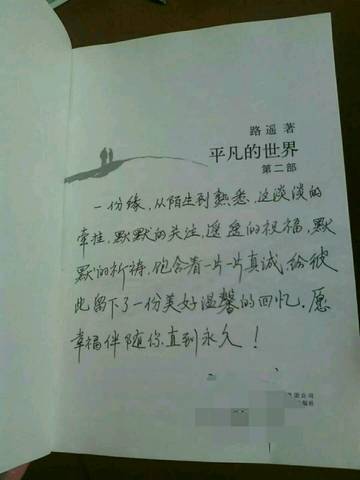 路遥 著
平凡的世界
第二部
一份缘，从陌生到熟悉，这淡淡的
牵挂，默默的关注，遥遥的祝福，默
默的祈祷，饱含着一片一片真诚，给彼
此留下了一份美好温馨的回忆．愿
幸福伴随你直到永久！